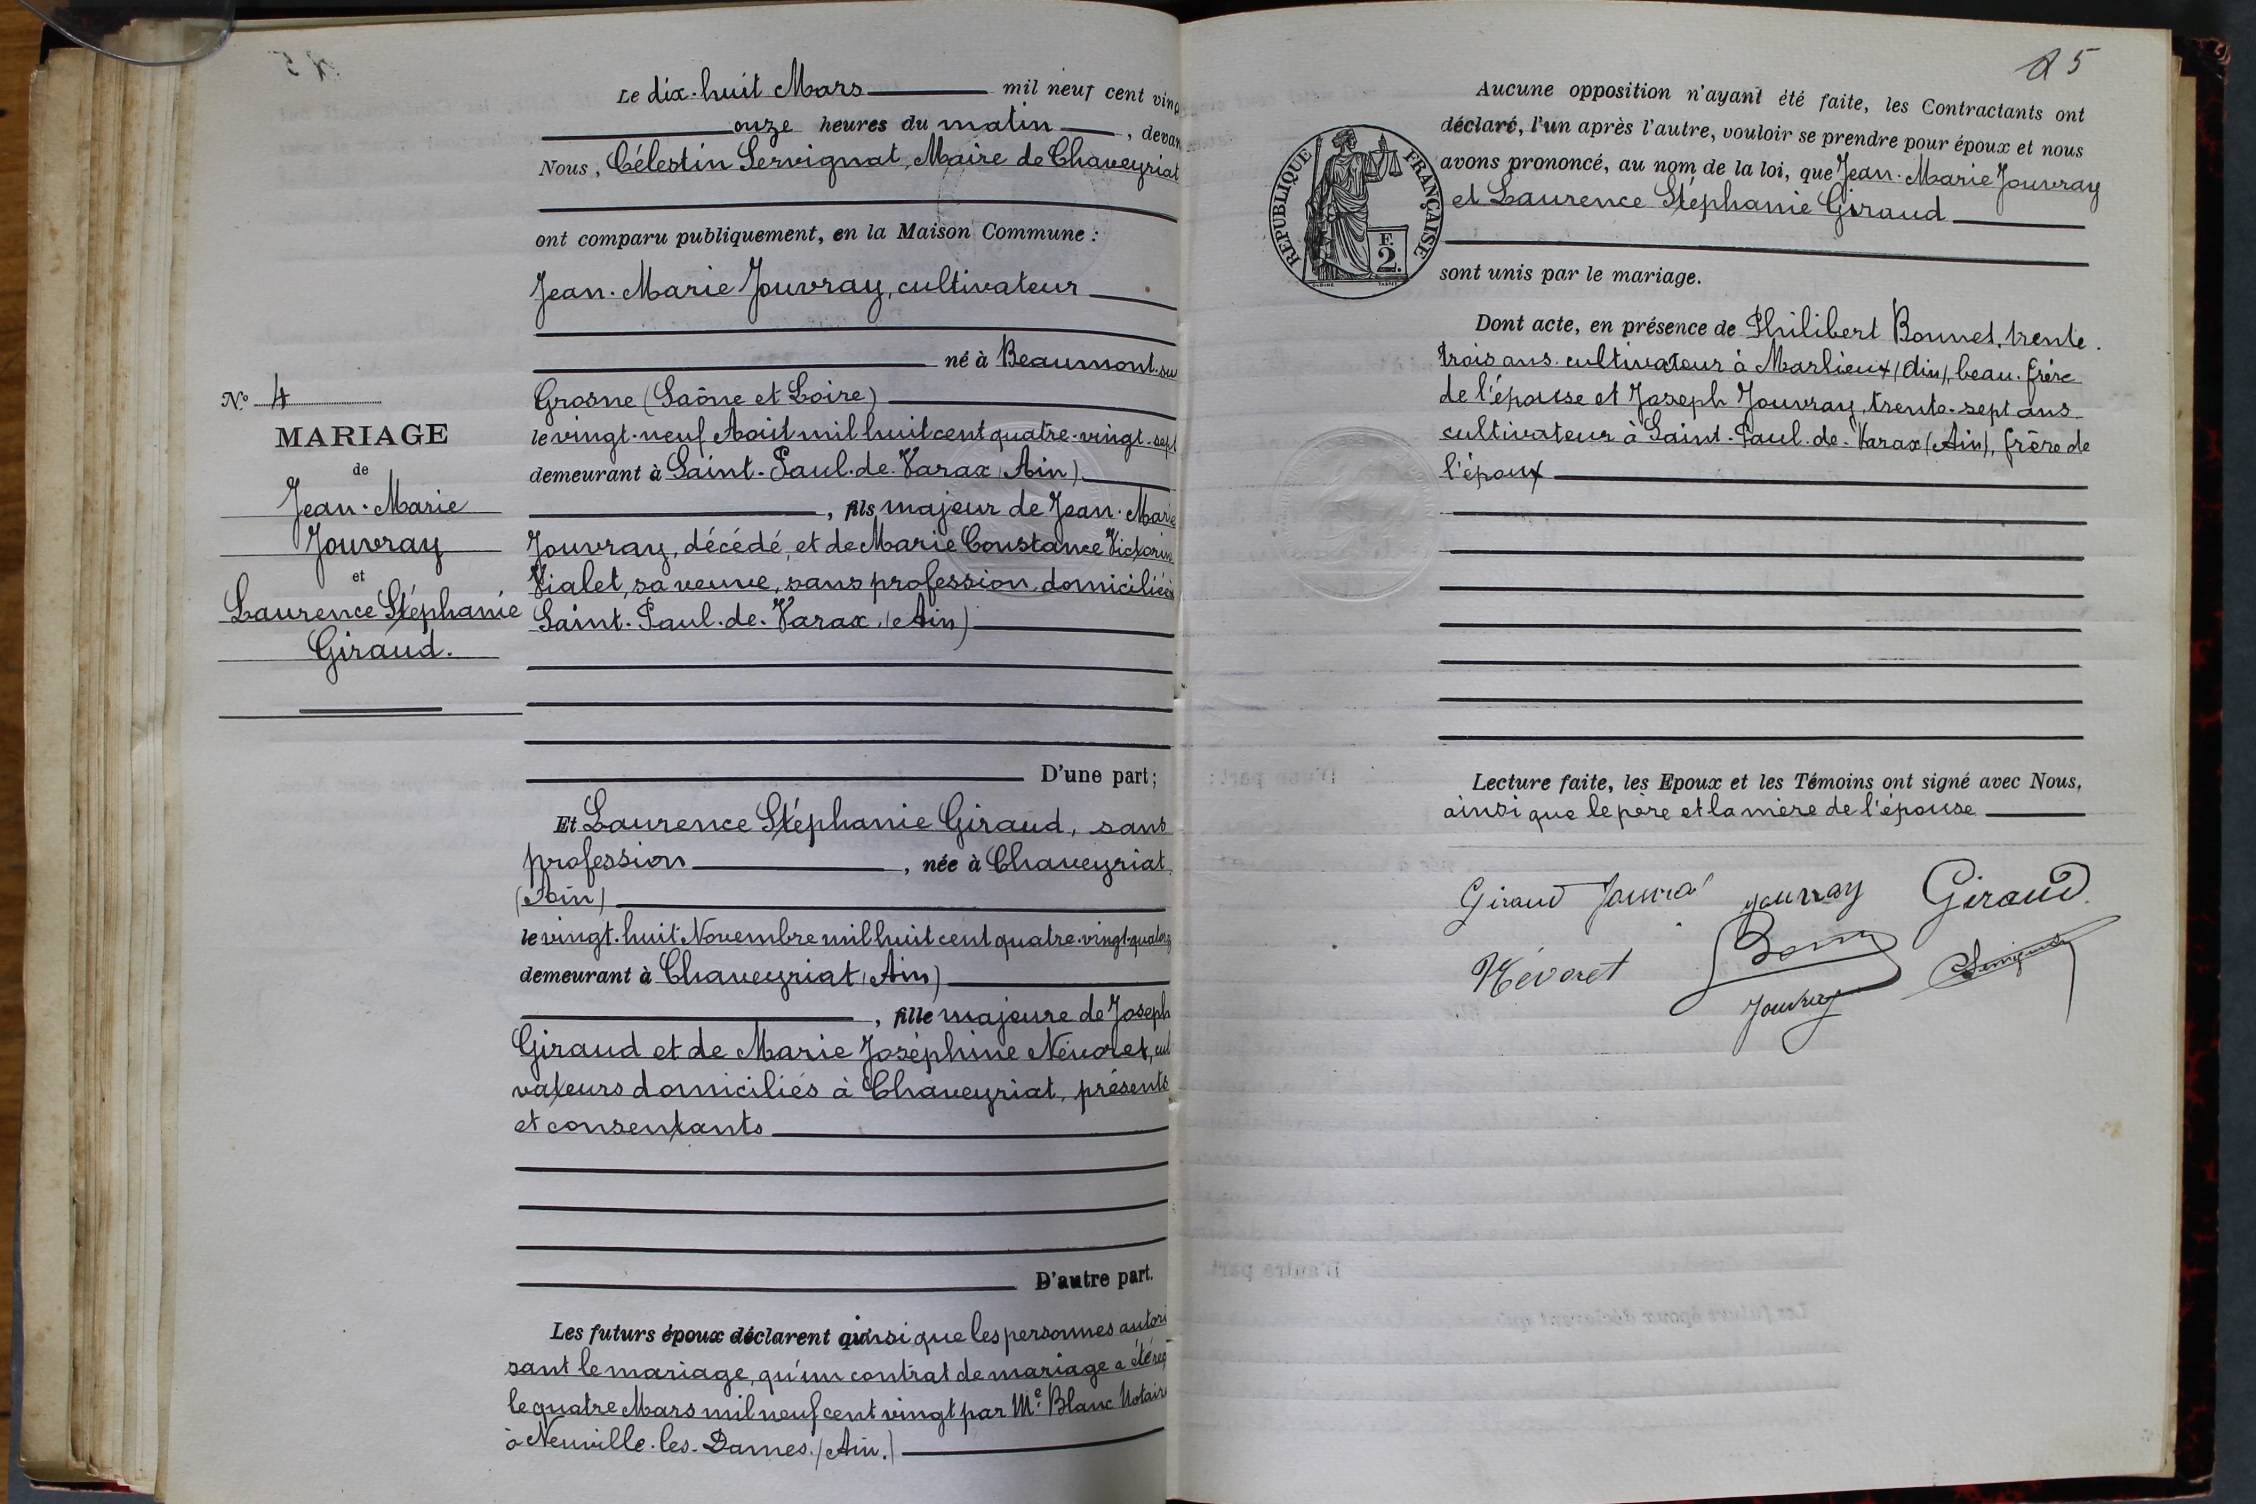 Le dix-huit Mars mil neuf cent ving
onze heures du matin, devan
Nous, Célestin Servignat, Maire de Chaveyriat
ont comparu publiquement, en la Maison Commune :
Jean-Marie Jouvray, cultivateur
né à Beaumont-su
Grosne (Saône et Loire)
le vingt-neuf Août mil huit cent quatre-vingt-sept
demeurant à Saint-Paul-de-Varax (Ain)
, fils majeur de Jean-Marie
Jouvray, décédé, et de Marie Constance Victorin
Vialet, sa veuve, sans profession domiciliée à
Saint-Paul-de-Varax (Ain)
D'une part;
Et Laurence Stéphanie Giraud, sans
profession, née à Chaveyriat
(Ain)
le vingt-huit Novembre mil huit cent quatre-vingt-quatorz
demeurant à Chaveyriat (Ain)
, fille majeure de Joseph
Giraud et de Marie Joséphine Névoret, cul
vateurs domiciliés à Chaveyriat, présents
et consentants
D'autre part.
Les futurs époux déclarent ainsi que les personnes autori
sant le mariage, qu'un contrat de mariage a été reç
le quatre Mars mil neuf cent vingt par Me Blanc Notaire
à Neuville-les-Dames (Ain.)
N° 4
MARIAGE
de
Jean-Marie
Jouvray
et
Laurence Stéphanie
Giraud.
25
Aucune opposition n'ayant été faite, les Contractants ont
déclaré, l'un après l'autre, vouloir se prendre pour époux et nous
avons prononcé, au nom de la loi, que Jean-Marie Jouvray
et Laurence Stéphanie Giraud
sont unis par le mariage.
RÉPUBLIQUE FRANÇAISE
F.
2.
Dont acte, en présence de Philibert Bonnet, trente-
trois ans cultivateur à Marlieux (Ain), beau-frère
de l'épouse et Joseph Jouvray, trente-sept ans
cultivateur à Saint-Paul-de-Varax (Ain), frère de
l'époux
Lecture faite, les Epoux et les Témoins ont signé avec Nous,
ainsi que le père et la mère de l'épouse
Giraud Jouvray Giraud
Névoret
Jouvray